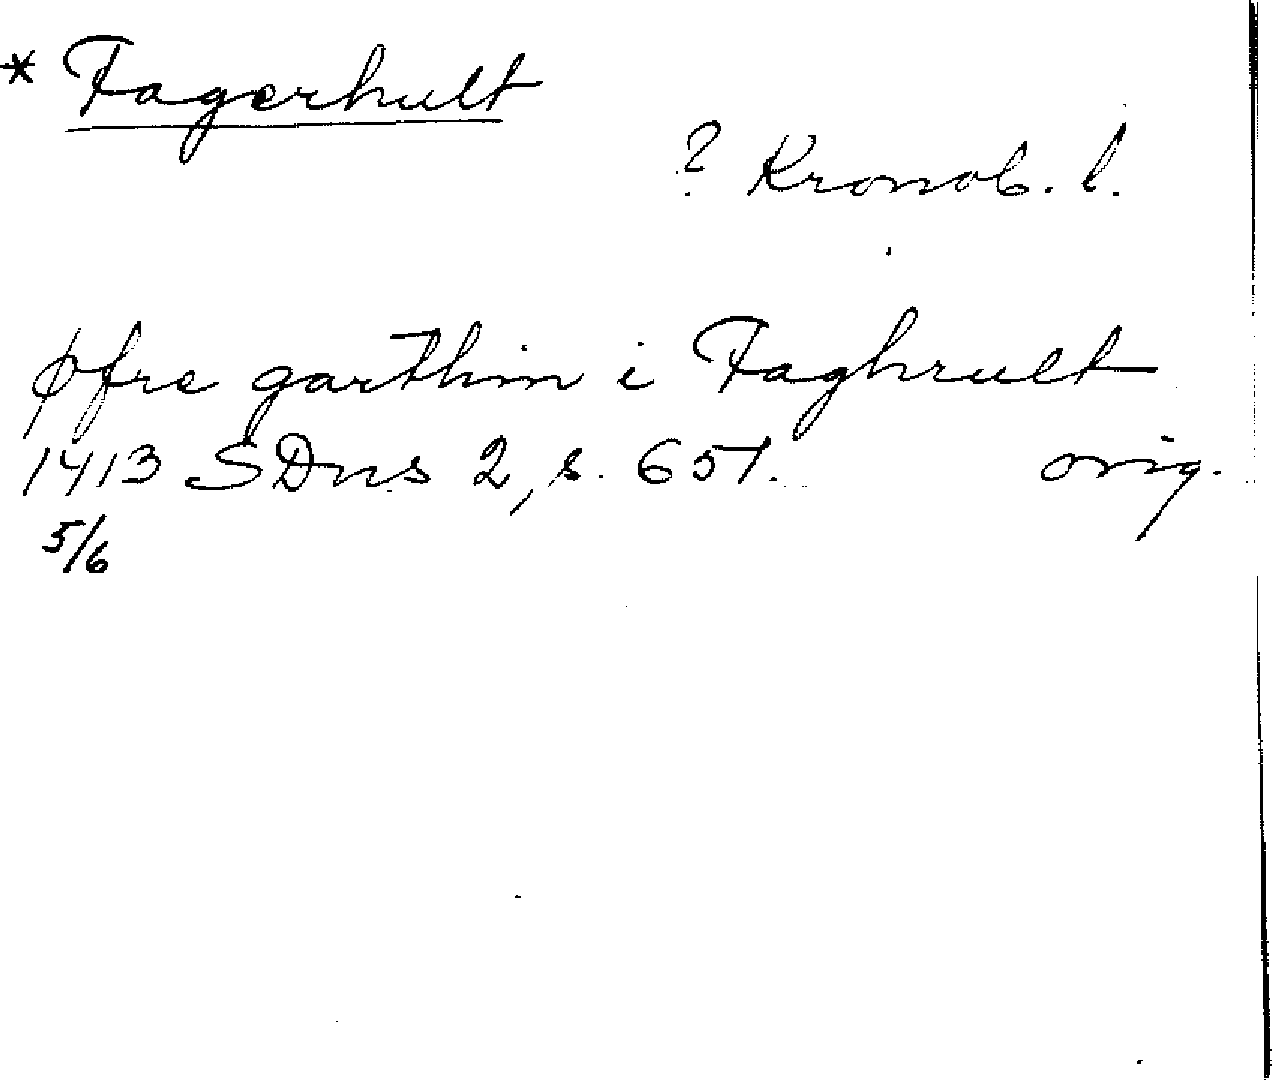 * Fagerhult
? Kronob. l.
øfre garthin i Faghrult
1413 SDns 2, s. 657. orig.
5/6